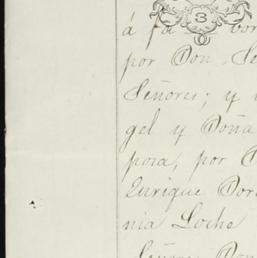 3
á fa bor
por Don Se
Señores; y
gel y Doña
posa, por
Enrique Dor
nia Loche
Señores Don